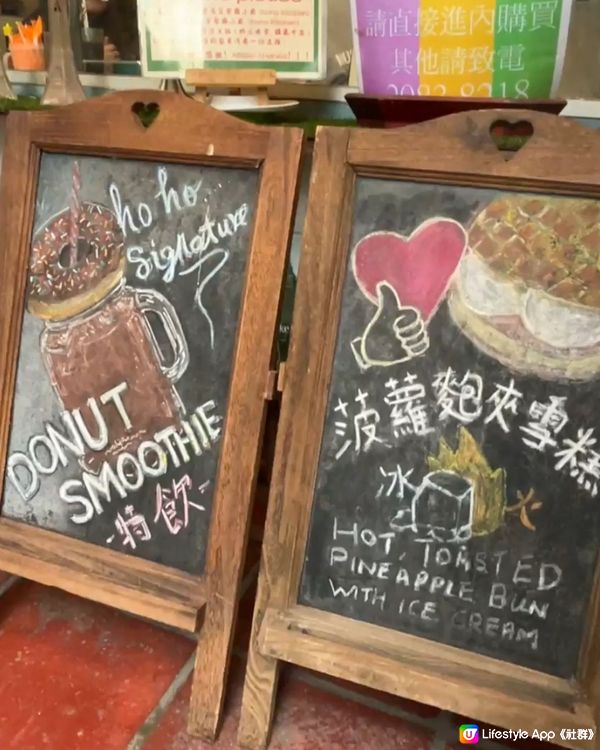 請直接進內購買
其他請致電
2982 8218
ho ho
Signature
DONUT
SMOOTHIE
-特飲-
菠蘿麭夾雪糕
冰
火
HOT, TOASTED
PINEAPPLE BUN
WITH ICE CREAM
U Lifestyle App《社群》